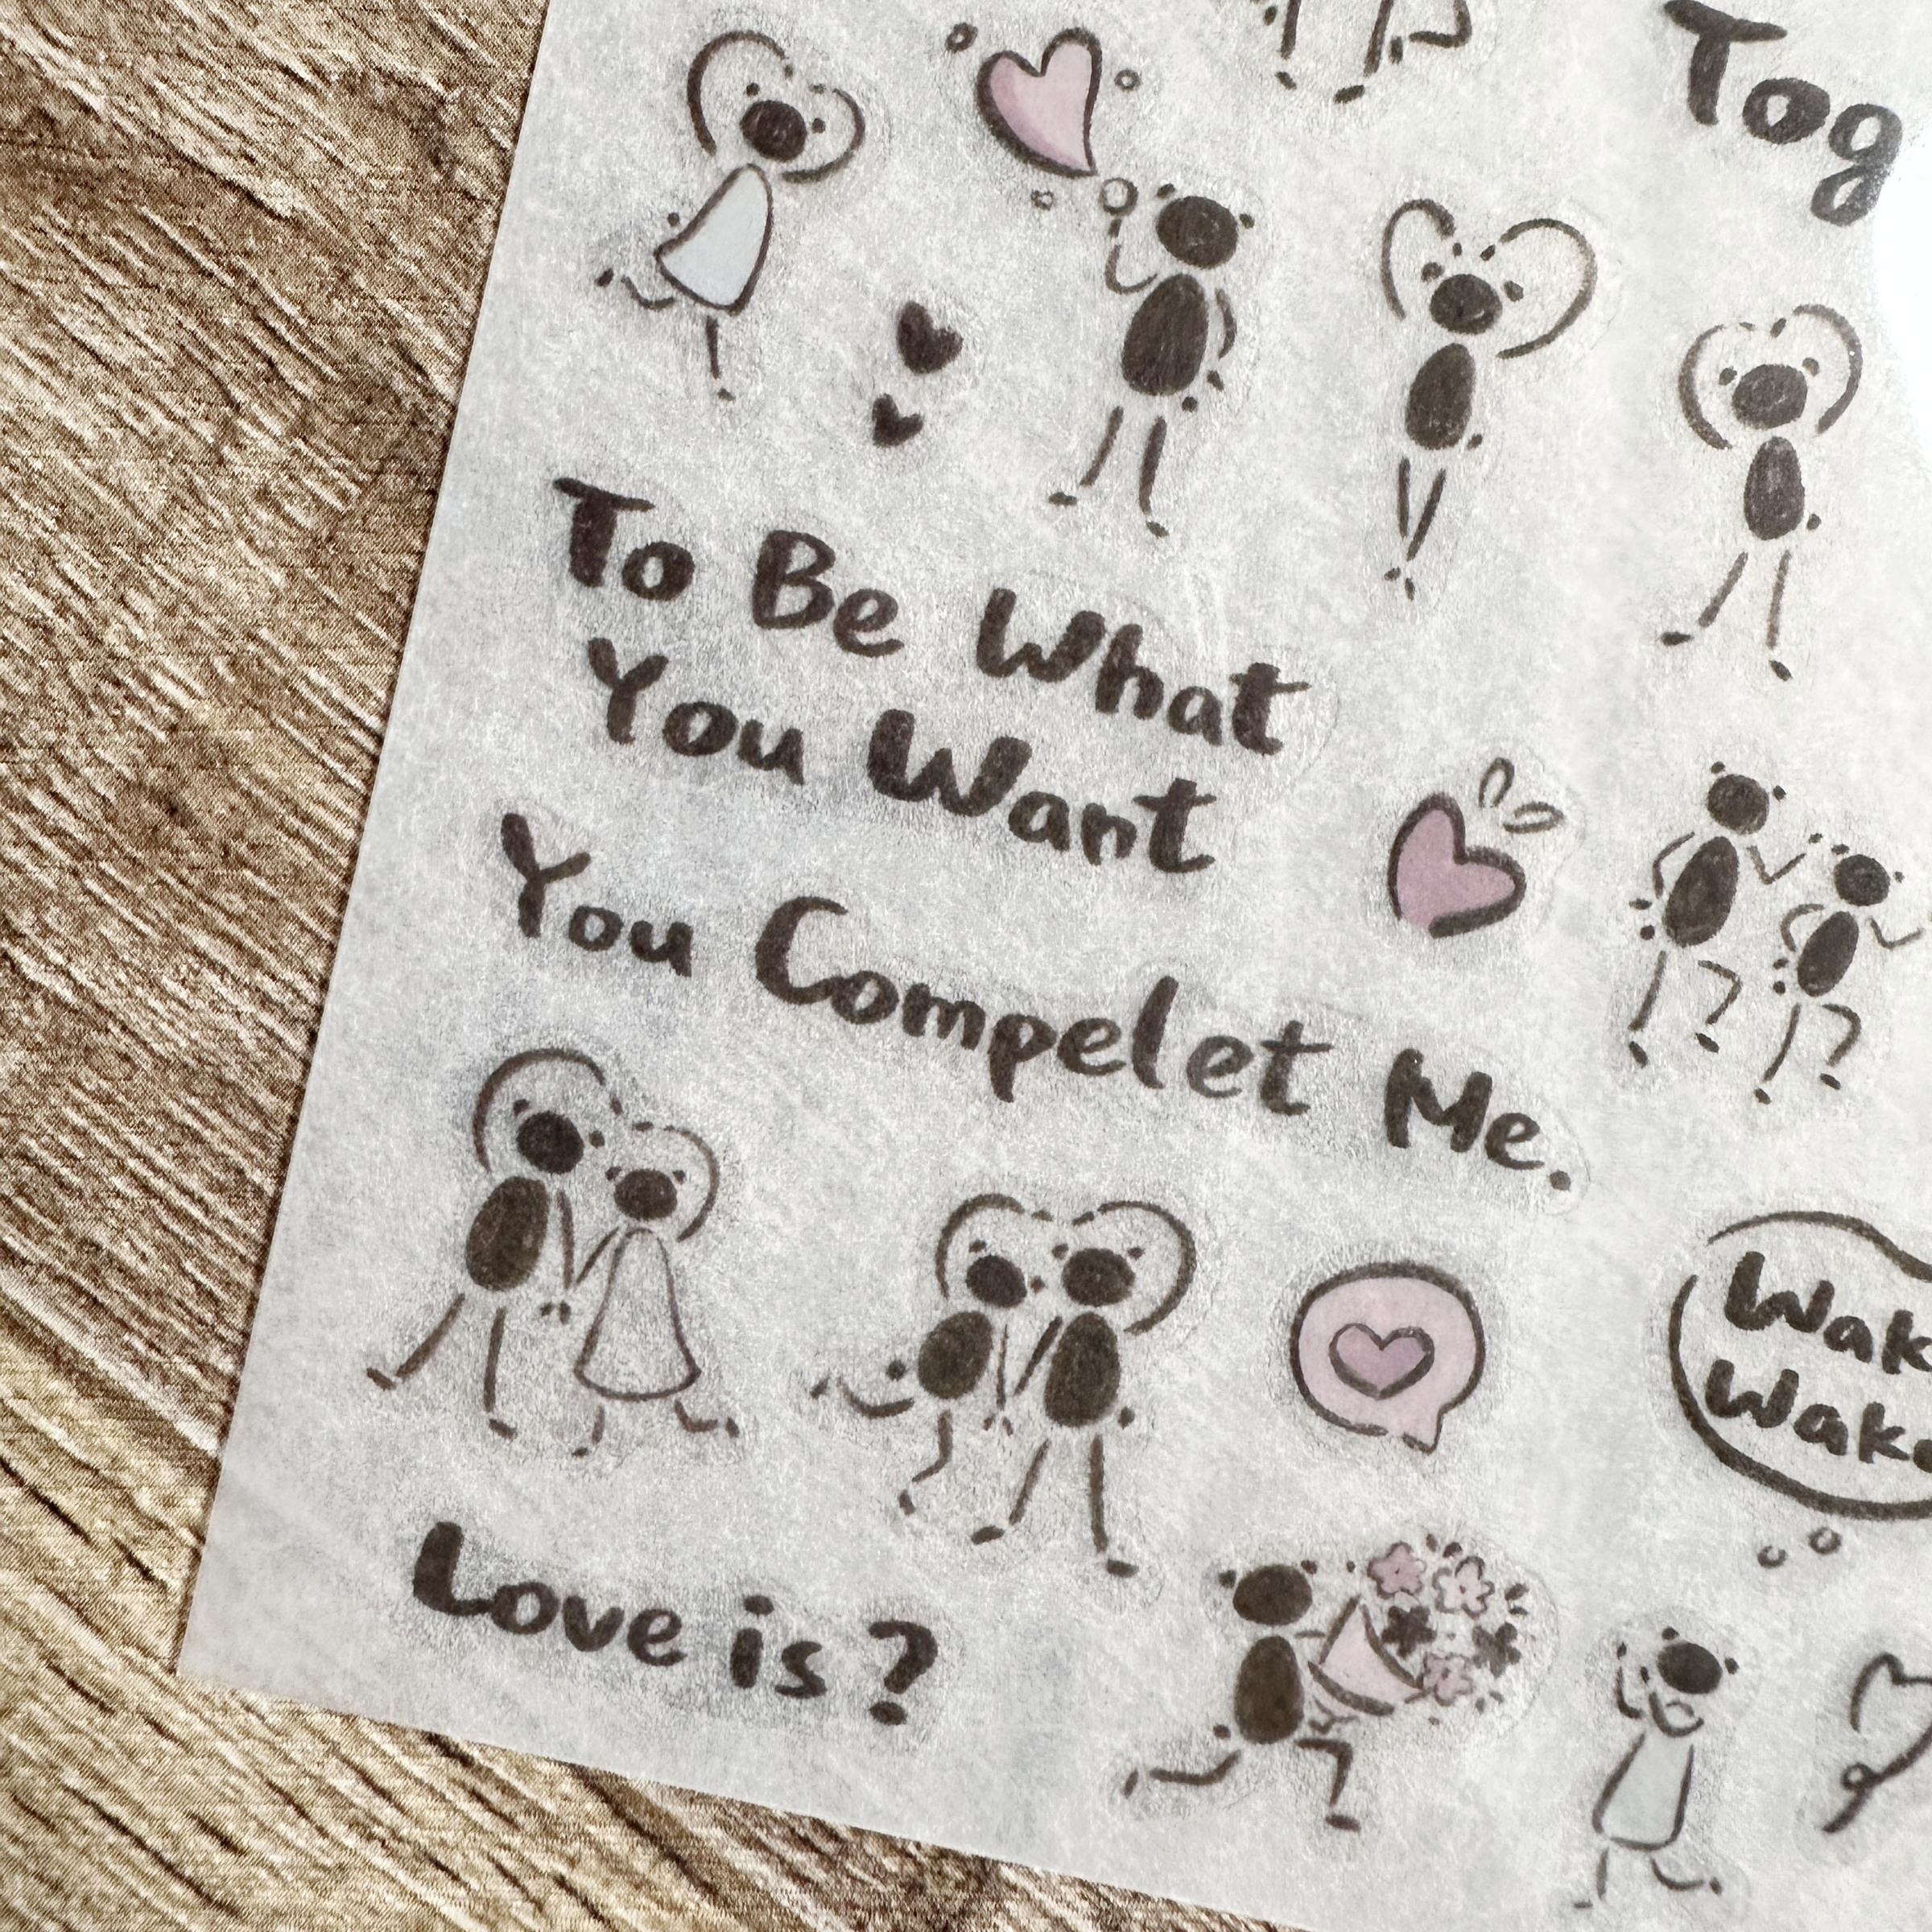 Tog
To Be What
You Want
You Compelet Me.
Wak
Wake
Love is?